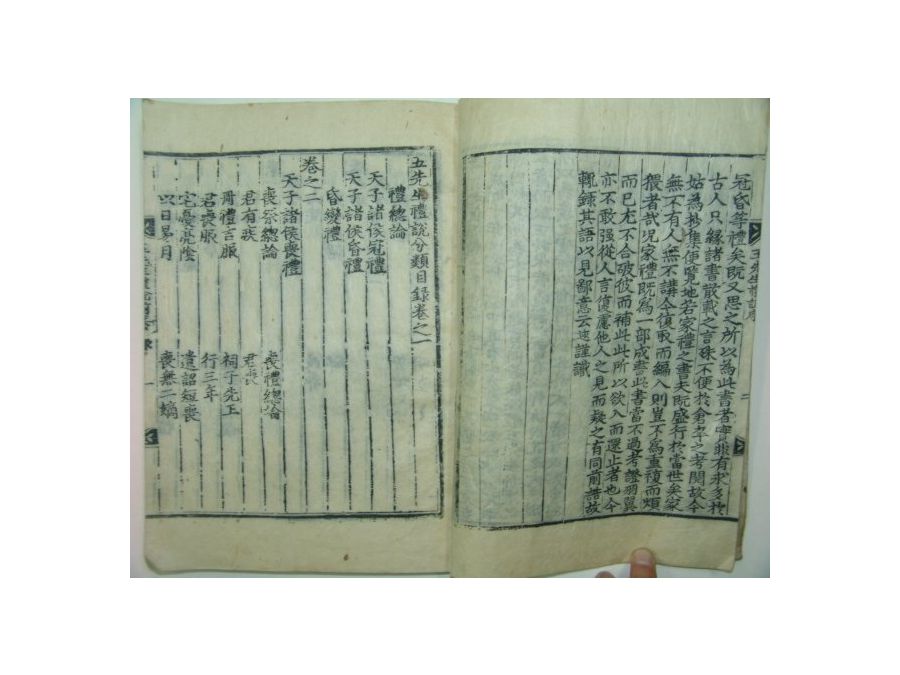 冠昏等禮矣旣又思之所以爲此書者實眼有求多於
古人只緣諸書散載之言殊不便於倉卒之考閱故今
姑爲抄集便覽地若家禮之書夫旣盛行於當世矣家
無不有人無不講今復取而編入則豈不爲重復而煩
猥者哉况家禮旣爲一部成書此書當不過考證羽翼
而已尤不合破彼而補此此所以欲入而還止者也今
亦不敢强從人言復慮他人之見而疑之有同前誚故
輒錄其語以見鄙意云逑謹識
五先生禮說分類目錄卷之一
禮總論
天子諸侯冠禮
天子諸侯昏禮
昏變禮
卷之二
天子諸侯喪禮
喪祭總論 喪禮總論
君有疾 君喪
冑禮吉服 祠子先王
君喪服 行三年
宅憂亮陰 遺詔短喪
以日易月 喪無二嫡